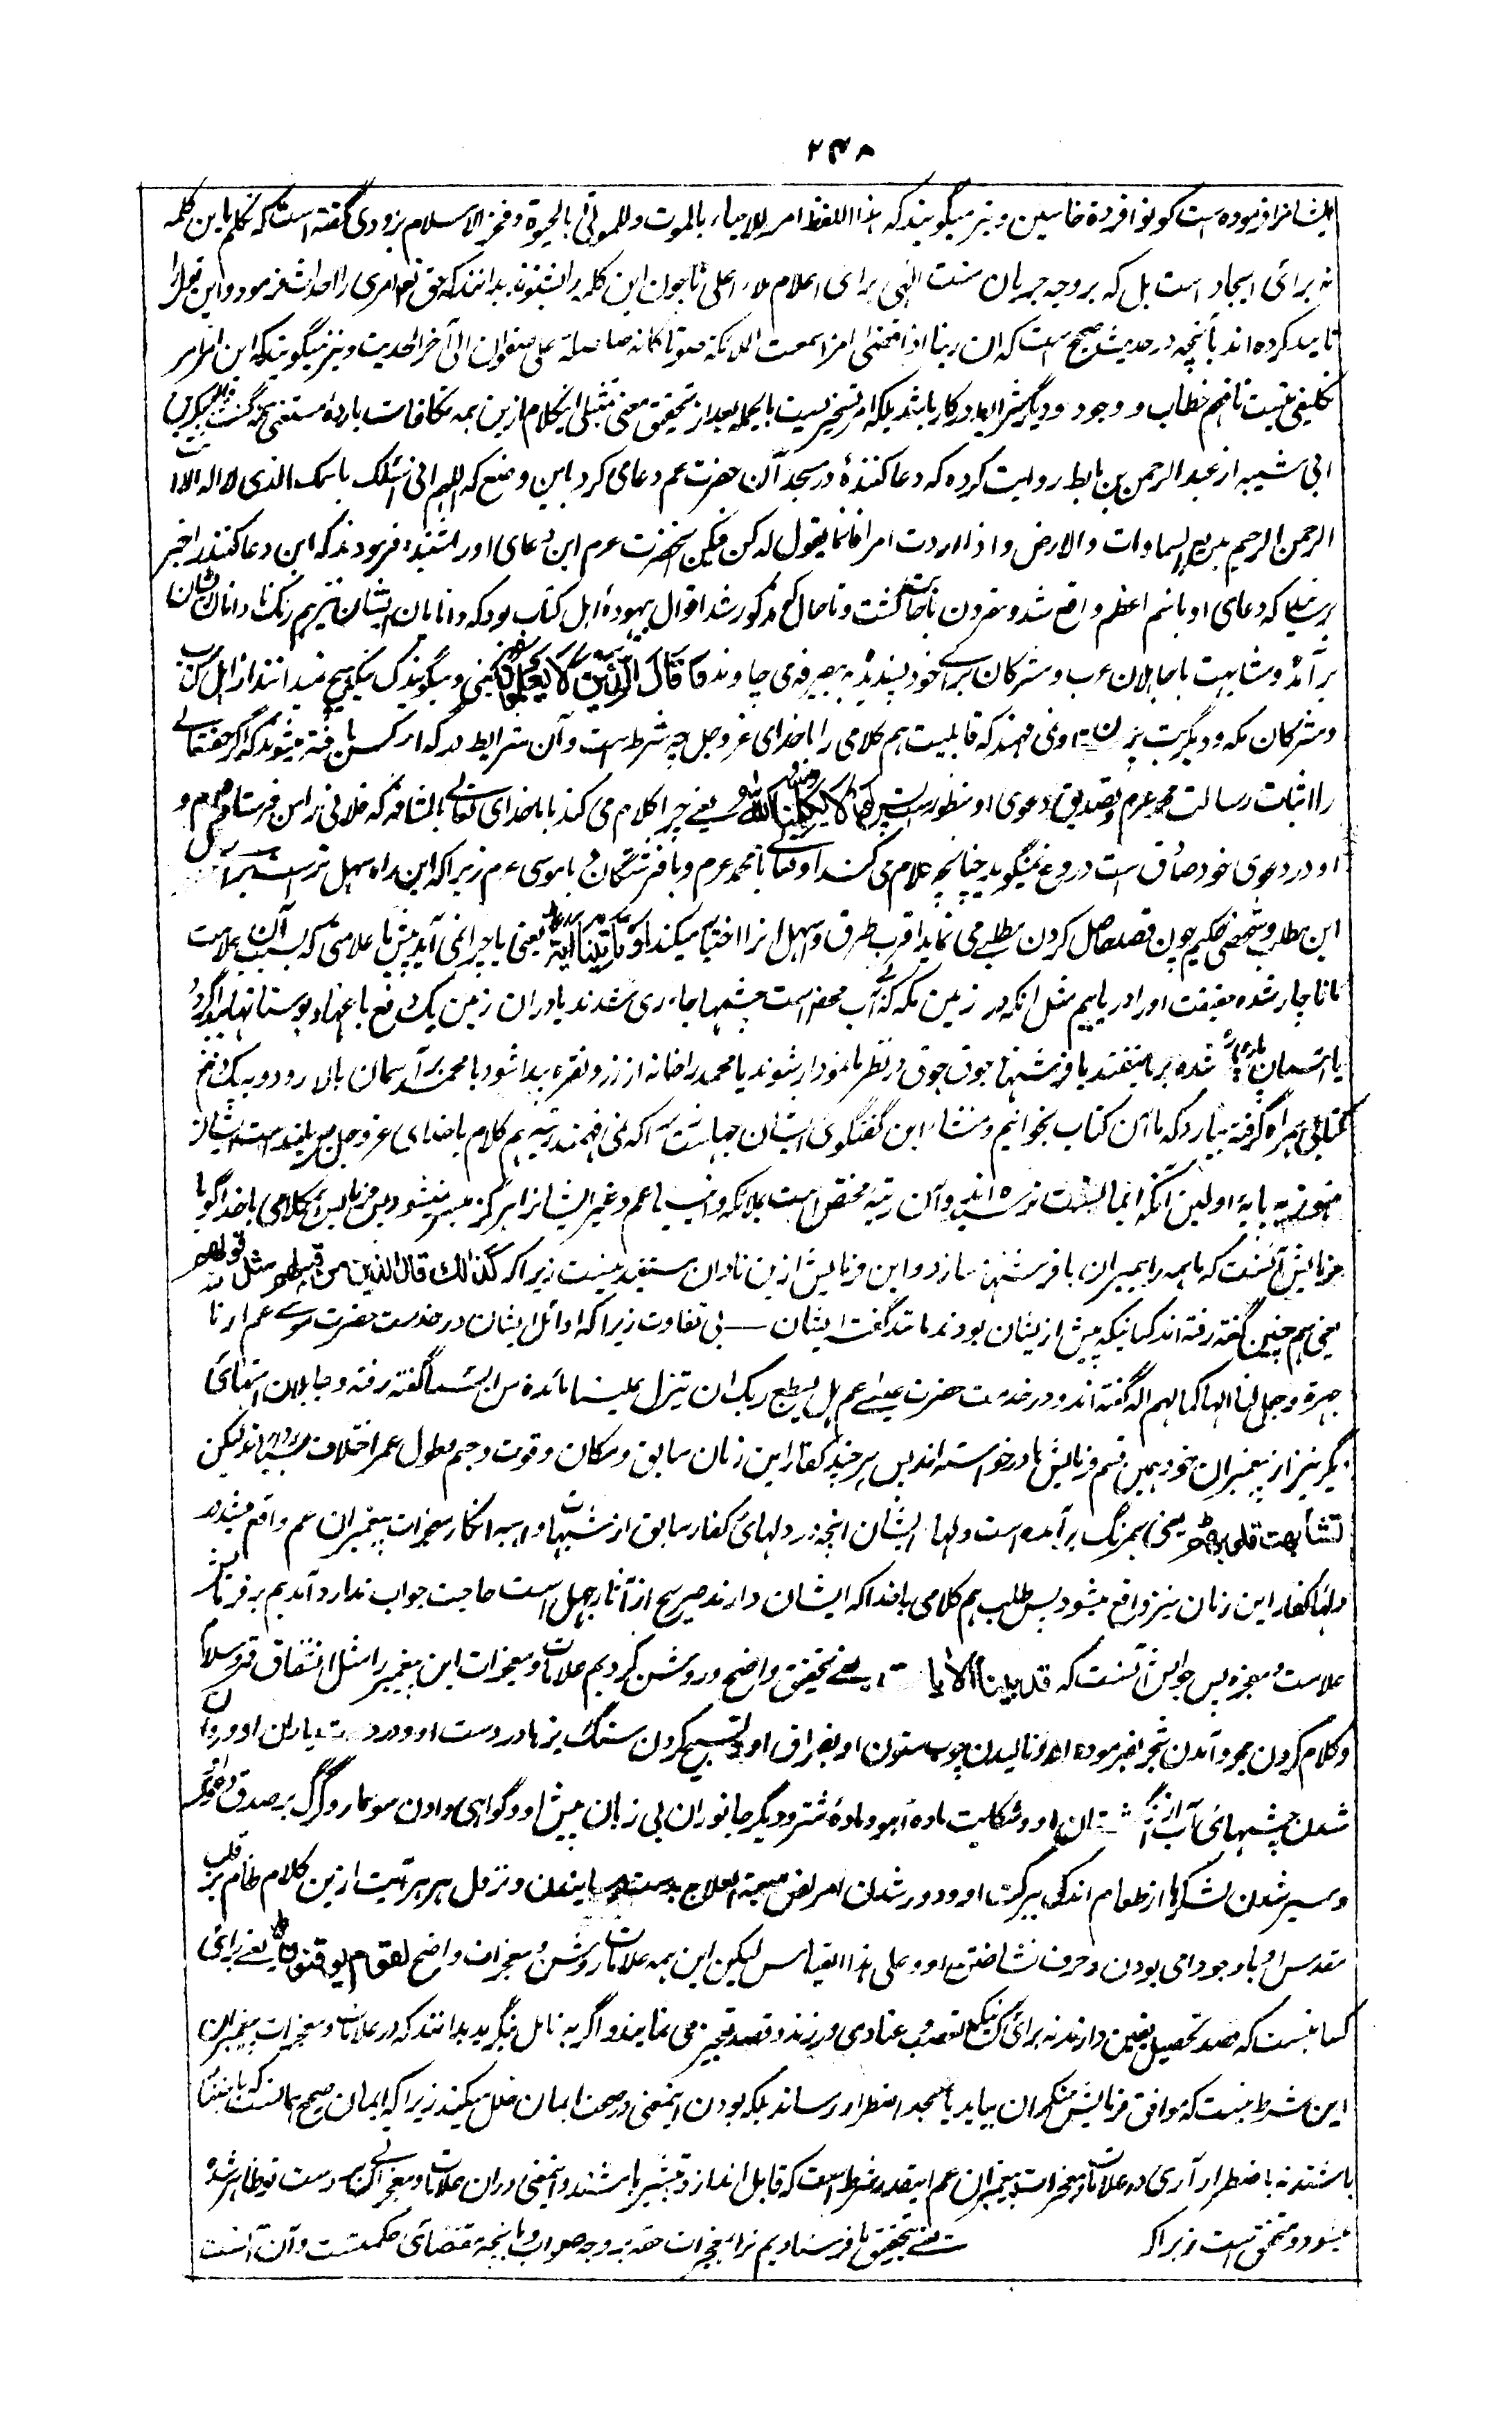 ۲۴۸
ایشانرا فرموده است کونوا قردة خاسئین و نیز میگویند که هذا اللفظ امر للاحیاء بالموت و للموتی بالحیوة و فخر الاسلام بزودی گفته است که تکلم باین کلمه
نه برای ایجاد است بل که بر وجه جریان سنت الهی برای اعلام ملاء اعلی تا چون این کلمه را بشنوند بدانند که حق تعالی امری را احداث فرمود و این قول را
تایید کرده اند بآنچه در حدیث صحیح است که ان ربنا اذا قضی امرا سمعت الملائکة صوتا کانه صلصلة علی صفوان الی آخر الحدیث و نیز میگویند که این امر امر
تکلیفی نیست تا فهم خطاب و وجود و دیگر شرایط درکار باشد بلکه امر تسخیریست بالجمله بعد از تحقیق معنی تمثیلی این کلام ازین همه تکلفات بارده مستغنی
ابی شیبه از عبد الرحمن بن سابط روایت کرده که دعا کننده در مسجد آن حضرت عم دعای کرد باین وضع که اللهم انی اسئلک باسمک الذی لا اله الا انت
الرحمن الرحیم بدیع السماوات والارض و اذا اردت امرا فانما تقول له کن فیکون آنحضرت عم این دعای او را شنیده فرمودند که این دعا کننده را خبر
برسانید که دعای او باسم اعظم واقع شد و مقرون باجابت گشت و تا حال که مذکور شد اقوال بیهوده اهل کتاب بود که دانایان ایشان نیز هم رنگ نادانان ایشان
بر آمده و مشابهت با جاهلان عرب و مشرکان برای خود پسندیده بیصرفه می جاوند وَقَالَ الَّذِیْنَ لَا یَعْلَمُوْنَ یعنی و میگویند کسانیکه هیچ نمیدانند از اهل کتاب
و مشرکان مکه و دیگر بت پرستان و نمی فهمند که قابلیت هم کلامی را با خدای عز وجل چه شرط است و آن شرایط در که از کس یافته میشوند که اگر حق تعالی
را اثبات رسالت محمد عم و تصدیق دعوی او منظور است پس لَوْلَا یُکَلِّمُنَا اللّٰهُ یعنی چرا کلام می کند با ما خدای تعالی بالمشافهه که فلانی را من فرستاده ام و
او در دعوی خود صادق است دروغ نمیگوید چنانچه کلام می کند او تعالی با محمد عم و با فرشتگان و با موسی عم زیرا که این راه سهل تر است
این مطلب و شخص حکیم چون قصد حاصل کردن مطلبی می نماید اقرب طرق و اسهل آنرا اختیار میکند اَوْ تَأْتِیْنَا اٰیَةٌ یعنی یا چرا نمی آید پیش ما علامتی که بسبب آن علامت
ما ناچار شده حقیقت او را دریابیم مثل آنکه در زمین مکه که بی آب محض است چشمها جاری شدند یا در آن زمین یک دفع باغها و بوستانها پیدا گردد
یا آسمان پاره پاره شده بر ما بیفتد یا فرشتها جوق جوق در نظر ما نمودار شوند یا محمد را خانه از زر و نقره پیدا شود یا محمد بر آسمان بالا رود و به یک دفع
کتابی همراه گرفته بیارد که ما آن کتاب بخوانیم و منشاء این گفتگوی ایشان جهالت است که نمی فهمند رتبه هم کلام با خدای عز وجل بس بلند است ایشان
هنوز به پایه اولین آنکه ایمانست نرسیده اند و آن رتبه مختص است بملائکه و انبیا عم و غیر ایشانرا هرگز میسر نمیشود پس فرمایش هم کلامی با خدا گویا
فرمایش آنست که ما همه را پیمبران یا فرشتها سازد و این فرمایش ازین نادان مستبعد نیست زیرا که کَذٰلِكَ قَالَ الَّذِیْنَ مِنْ قَبْلِهِمْ مِثْلَ قَوْلِهِمْ
یعنی هم چنین گفته رفته اند کسانیکه پیش از ایشان بودند مانند گفت ایشان بی تفاوت زیرا که اوائل ایشان در خدمت حضرت موسی عم ارنا
جهرة و اجعل لنا الها کما لهم آلهة گفته اند و در خدمت حضرت عیسی عم هل یستطیع ربک ان ینزل علینا مائدة من السماء گفته رفته و جاهلان امتهای
دیگر نیز از پیغمبران خود همین قسم فرمایش ها درخواسته اند پس هر چند کفار این زمان و سابق و مکان و قوت و جسم و طول عمر اختلاف لیکن
تَشَابَهَتْ قُلُوْبُهُمْ یعنی همرنگ برآمده است دلهای ایشان آنچه در دلهای کفار سابق از شبهات واهیه و انکار معجزات پیغمبران عم واقع میشدند
در دلهای کفار این زمان نیز واقع میشود پس طلب هم کلامی با خدا که ایشان دارند صریح از آثار جهل است حاجت جواب ندارد آمدیم بر فرمایش
علامت و معجزه پس جوابش آنست که قَدْ بَیَّنَّا الْاٰیَاتِ یعنی تحقیق واضح و روشن کردیم علامات و معجزات این پیغمبر را مثل انشقاق قمر و سلام
و کلام کردن حجر و آمدن شجر بفرموده او و نالیدن چوب ستون او بفراق او و تسبیح کردن سنگ ریزها در دست او و در دست یاران او و روان
شدن چشمهای آب از انگشتان او و شکایت ماده آهو و ماده شتر و دیگر جانوران بی زبان پیش او و گواهی دادن سوسمار و گرگ بر صدق دعوی او
و سیر شدن لشکرها از طعام اندک ببرکت او و دور شدن امراض صعبة العلاج بدست رسانیدن و نزول هر هر آیت ازین کلام نظام بر قلب
مقدس او با وجود امی بودن و حرف نشناختن او و علی هذا القیاس لیکن این همه علامات روشن و معجزات واضح لِقَوْمٍ یُّوْقِنُوْنَ یعنی برای
کسانیست که قصد تحصیل یقین دارند نه برای کسانیکه تعصب و عنادی ورزند و قصد تعجیز می نمایند و اگر به تامل بنگرید بدانند که در علامات و معجزات پیغمبران
این شرط نیست که موافق فرمایش منکران بیاید یا بحد اضطرار رساند بلکه بودن اینمعنی در صحت ایمان خلل میکند زیرا که ایمان صحیح همانست که باختیار
باشند نه باضطرار آری در علامات و معجزات پیغمبران عم اینقدر شرط است که قابل انذار و تبشیر باشند و اینمعنی در آن علامات و معجزات که بر دست تو ظاهر شده
میشود و متحقق است زیرا که یعنی بتحقیق ما فرستادیم ترا بمعجزات حقه بر وجه صواب و بآنچه مقتضای حکمتست و آن آنست